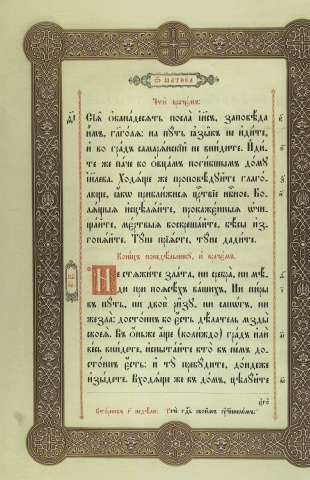 Ѿ МАТѲЕА
Чтⷭ҇и врачє́мъ:
Сїѧ̑ ѻ҆бана́десѧть посла̀ і҆и҃съ, заповѣ́да
и҆̀мъ, гл҃го́лѧ: на пꙋ́ть ꙗ҆зы̑къ не и҆ди́те,
и҆ во гра́дъ самарѧ́нскїй не вни́дите. И҆ди́-
те же па́че ко ѻ҆вца́мъ поги́бшымъ до́мꙋ
і҆и҃лева. Ходѧ́ще же проповѣ́дꙋйте глаго́-
люще, ꙗ҆́кѡ прибли́жисѧ црⷭ҇твїе нбⷭ҇ное. Бо-
лѧ́щыѧ и҆сцѣлѧ́йте, прокаже́нныѧ ѡ҆чи-
ща́йте, мє́ртвыѧ воскреша́йте, бѣ́сы и҆з-
гонѧ́йте. Тꙋ́не прїѧ́сте, тꙋ́не дади́те.
Коне́цъ понедѣ́льникꙋ, и҆ врачє́мъ.
Не стѧжи́те зла́та, ни сребра̀, ни мѣ́-
ди при поѧсѣ́хъ ва́шихъ, Ни пи́ры
въ пꙋ́ть, ни двою̀ ри̑зꙋ, ни сапѡ́гъ, ни
жезла̀: досто́инъ бо є҆́сть дѣ́латель мзды̀
своеѧ̀. Въ ѻ҆́ньже а҆́ще (коли́ждо) гра́дъ и҆лѝ
ве́сь вни́дете, и҆спыта́йте кто̀ въ не́мъ до-
сто́инъ є҆́сть: и҆ тꙋ̀ пребꙋ́дите, до́ндеже
и҆зы́дете. Входѧ́ще же въ до́мъ, цѣлꙋ́йте
є҆го̀
Вто́рникъ г҃ недѣ́ли: Речѐ гдⷭ҇ь свои̑мъ ᲂу҆чн҃кѡ́мъ: